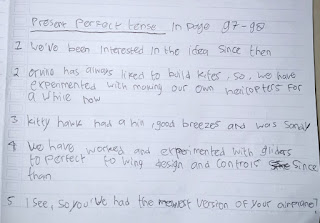 Present Perfect tense in page 97-98
1 we've been interested in the idea since then
2 orvile has always liked to build kites, so, we have
experimented with making our own helicopters for
a while now
3 kitty hawk had a hill, good breezes and was sandy
4 we have worked and experimented with gliders
to perfect to wing design and controls since
than
5 I see, so you've had the newest version of your airplane?